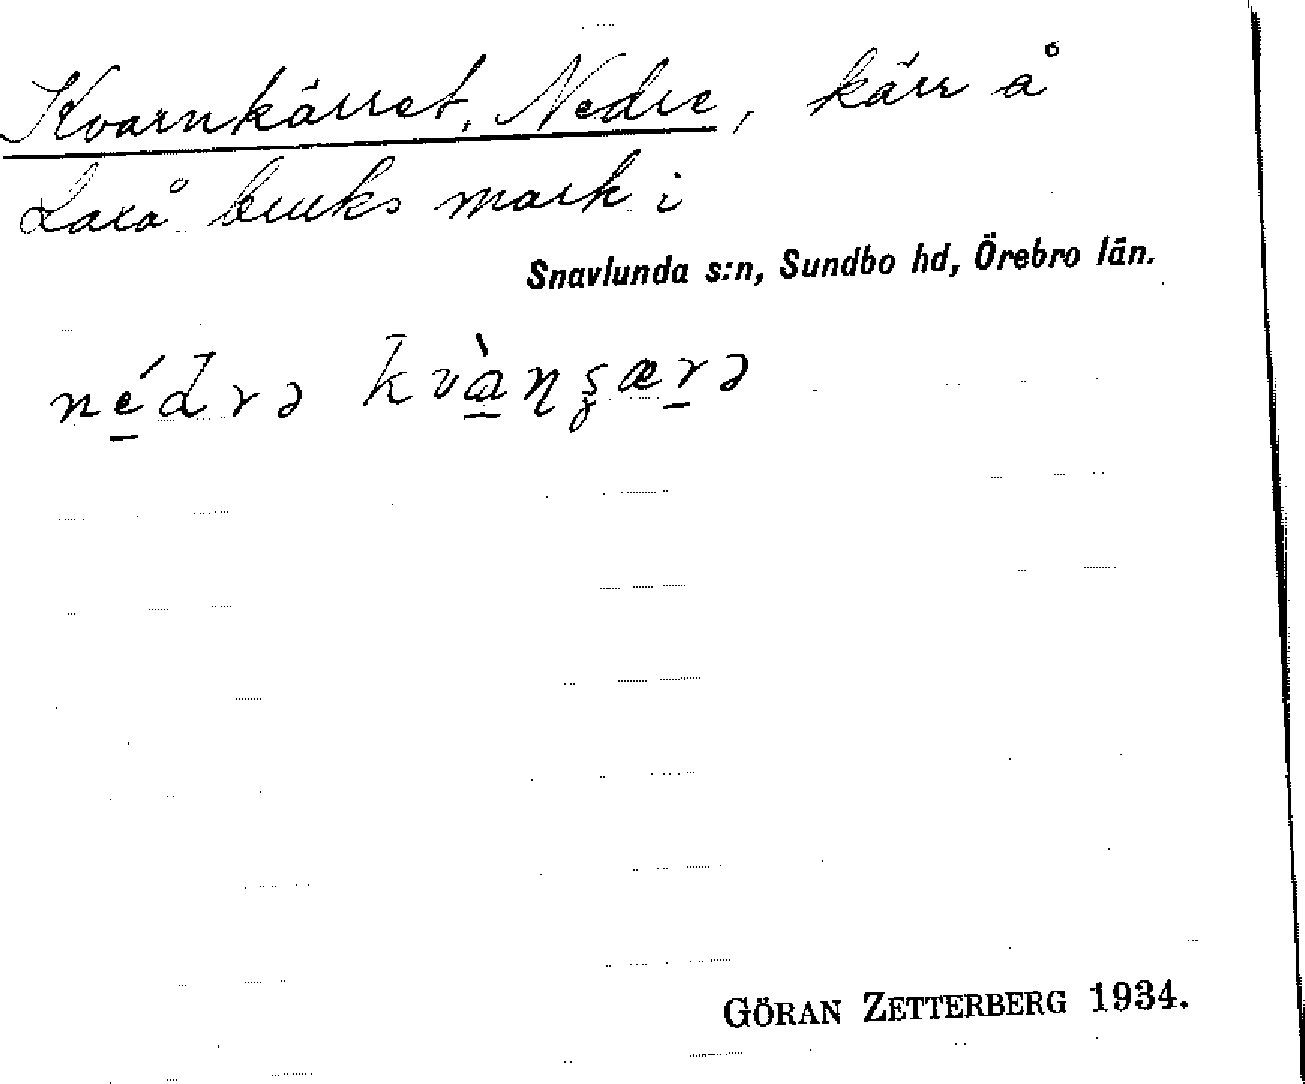 Kvarnkärret, Nedre, kärr å
Laxå bruks mark i
Snavlunda s:n, Sundbo hd, Örebro län.
né̱drə kvà̱ŋʂæṟə
GÖRAN ZETTERBERG 1934.